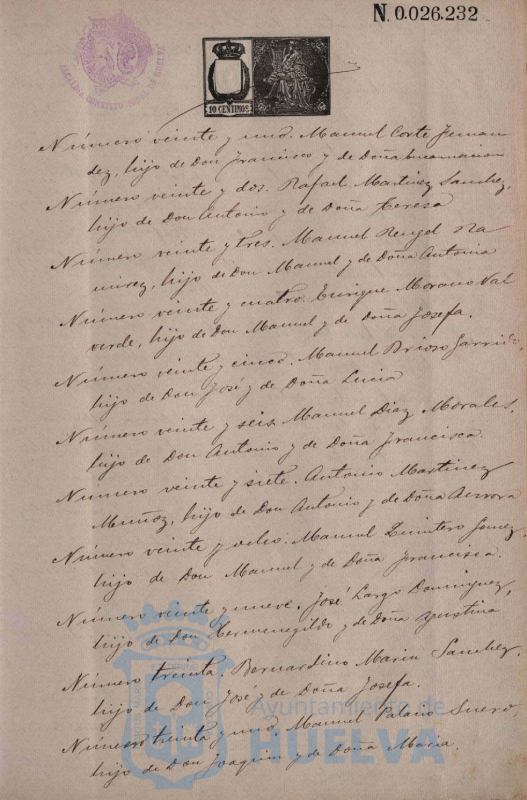 N. 0.026.232
ALCALDIA CONSTITUCIONAL DE HUELVA
10 CENTIMOS
Número veinte y uno. Manuel Corte Fernan
dez, hijo de Don Francisco y de Doña
Número veinte y dos. Rafael Martinez Sanchez,
hijo de Don Antonio y de Doña Teresa
Número veinte y tres. Manuel Rengel Ra
mirez, hijo de Don Manuel y de Doña Antonia
Número veinte y cuatro. Enrique Morano Val
verde, hijo de Don Manuel y de Doña Josefa.
Número veinte y cinco. Manuel Brioso Garrido,
hijo de Don José y de Doña Lucia
Número veinte y seis. Manuel Diaz Morales,
hijo de Don Antonio y de Doña Francisca.
Número veinte y siete. Antonio Martinez
Muñoz, hijo de Don Antonio y de Doña Aurora
Número veinte y ocho. Manuel Quintero Gomez,
hijo de Don Manuel y de Doña Francisca.
Número veinte y nueve. José Largo Dominguez,
hijo de Don Hermenegildo y de Doña Agustina
Número treinta. Bernardino Marin Sanchez,
hijo de Don José y de Doña Josefa.
Número treinta y uno. Manuel Palacio Suero,
hijo de Don Joaquin y de Doña Maria.
Ayuntamiento de
HUELVA